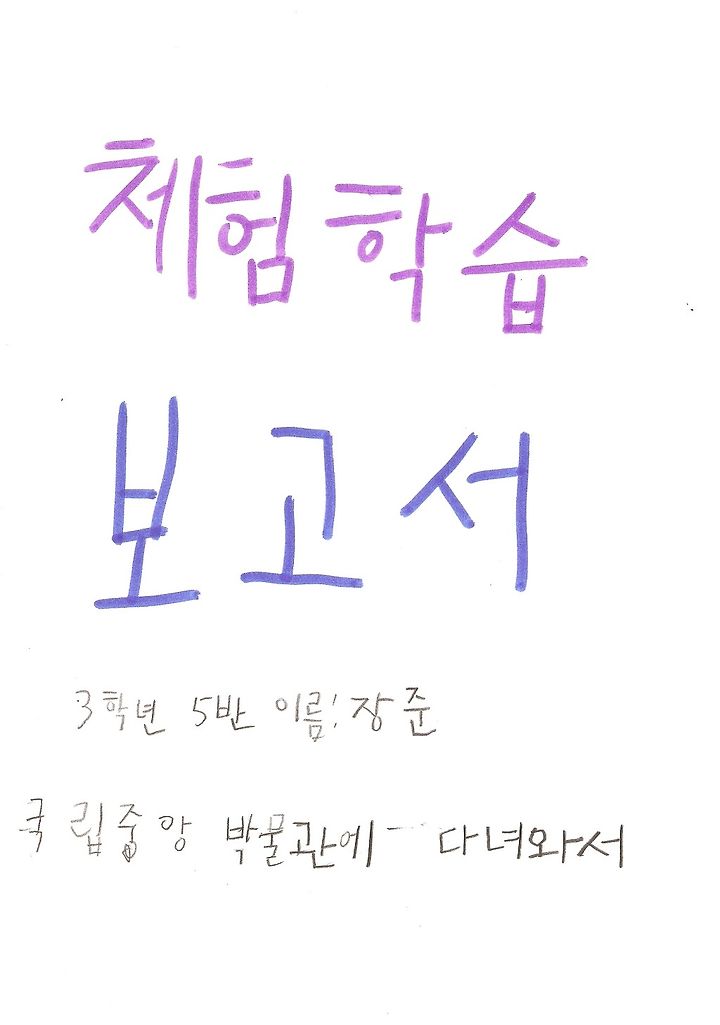 체험학습
보고서
3학년 5반 이름: 장준
국립중앙 박물관에 다녀와서